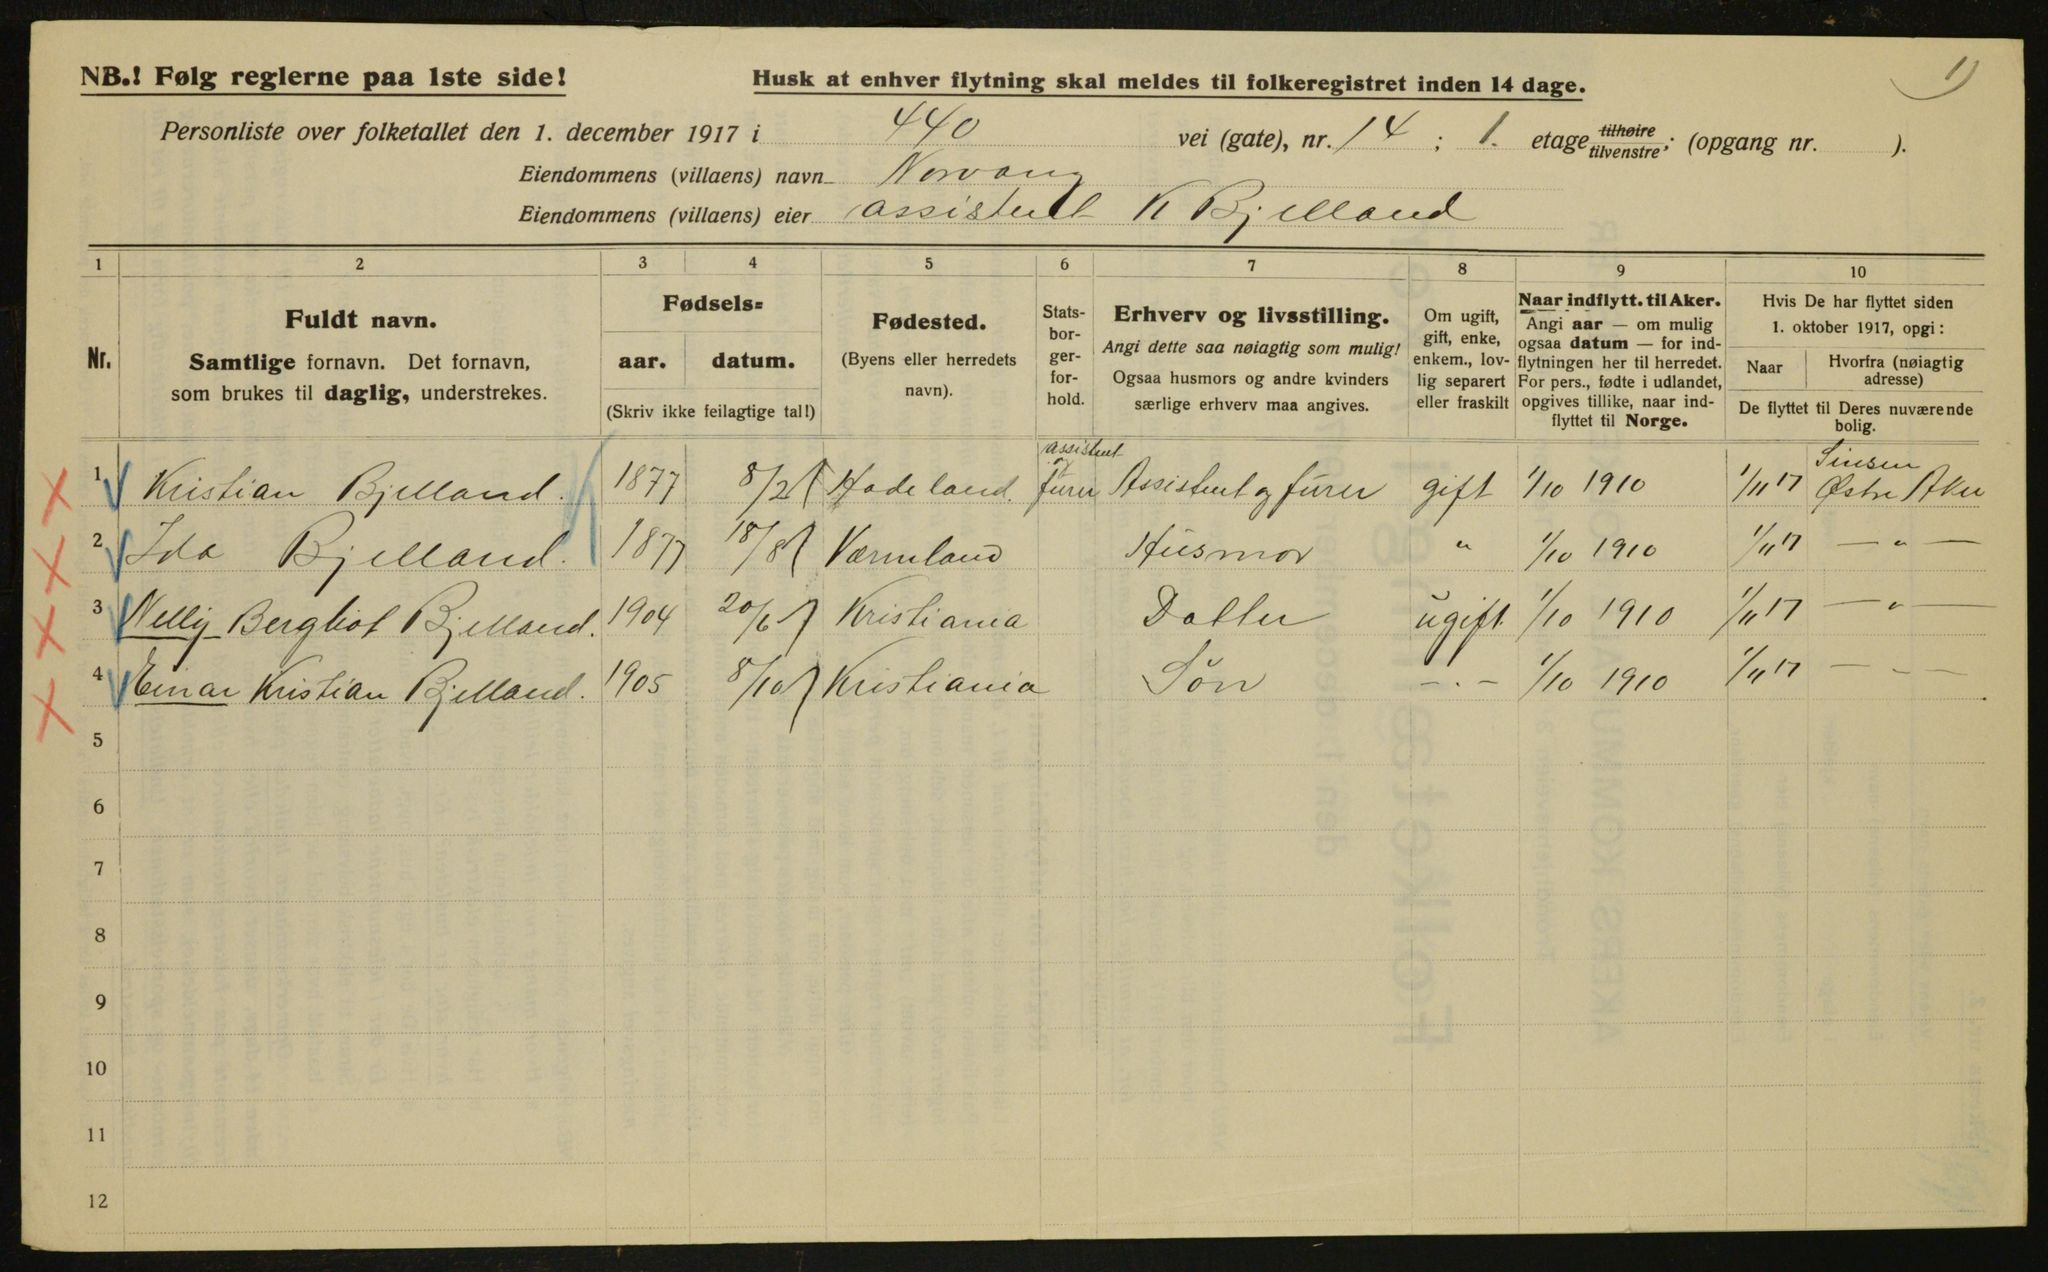 1)
NB.! Følg reglerne paa 1ste side! Husk at enhver flytning skal meldes til folkeregistret inden 14 dage.
Personliste over folketallet den 1. december 1917 i 440 vei (gate), nr. 14 ; 1. etage tilhøire tilvenstre; (opgang nr. ).
Eiendommens (villaens) navn Norvang
Eiendommens (villaens) eier assistent K Bjelland
1 2 3 4 5 6 7 8 9 10
Nr.
Fuldt navn.
Samtlige fornavn. Det fornavn,
som brukes til daglig, understrekes.
Fødsels=
aar. datum.
(Skriv ikke feilagtige tal!)
Fødested.
(Byens eller herredets
navn).
Stats-
bor-
ger-
for-
hold.
Erhverv og livsstilling.
Angi dette saa nøiagtig som mulig!
Ogsaa husmors og andre kvinders
særlige erhverv maa angives.
Om ugift,
gift, enke,
enkem., lov-
lig separert
eller fraskilt
Naar indflytt. til Aker.
Angi aar — om mulig
ogsaa datum — for ind-
flytningen her til herredet.
For pers., fødte i udlandet,
opgives tillike, naar ind-
flyttet til Norge.
Hvis De har flyttet siden
1. oktober 1917, opgi:
Naar
Hvorfra (nøiagtig
adresse)
De flyttet til Deres nuværende
bolig.
1 Kristian Bjelland. 1877 8/2 Hadeland. assistent og furer Assistent og furer gift 1/10 1910 1/11 17 Sinsen Østre Aker
2 Ida Bjelland. 1877 18/8 Værmland Husmor " 1/10 1910 1/11 17 — " —
3 Nelly Bergliot Bjelland. 1904 20/6 Kristiania Datter ugift 1/10 1910 1/11 17 — " —
4 Einar Kristian Bjelland. 1905 8/10 Kristiania Søn - " - 1/10 1910 1/11 17 — " —
5
6
7
8
9
10
11
12